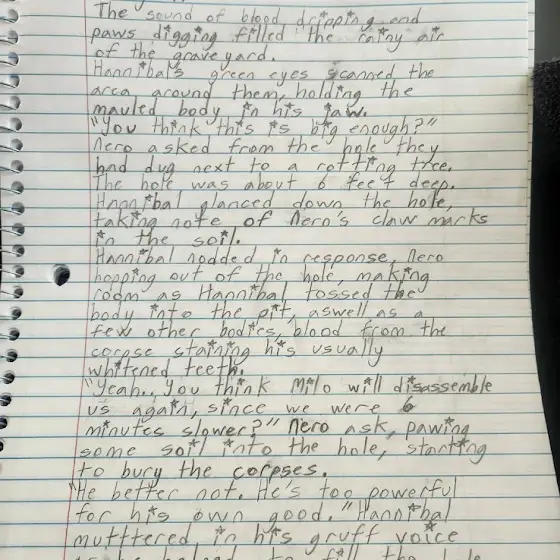 The sound of blood dripping and
paws digging filled the rainy air
of the graveyard.
Hannibal's green eyes scanned the
area around them, holding the
mauled body in his jaw.
"You think this is big enough?"
Nero asked from the hole they
had dug next to a rotting tree.
The hole was about 6 feet deep.
Hannibal glanced down the hole,
taking note of Nero's claw marks
in the soil.
Hannibal nodded in response, Nero
hopping out of the hole, making
room as Hannibal tossed the
body into the pit, aswell as a
few other bodies, blood from the
corpse staining his usually
whitened teeth.
"Yeah., you think Milo will disassemble
us again, since we were 6
minutes slower?" Nero ask, pawing
some soil into the hole, starting
to bury the corpses.
"He better not. He's too powerful
for his own good." Hannibal
mutttered, in his gruff voice
as he helped to fill the hole